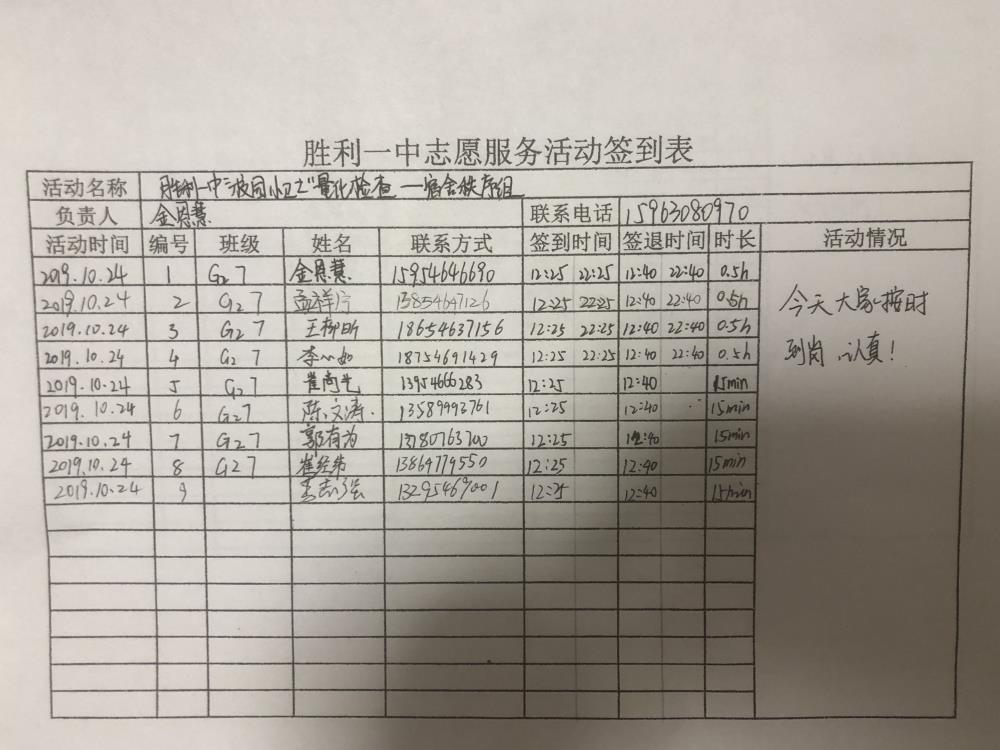 胜利一中志愿服务活动签到表
活动名称 胜利一中"校园小卫士"量化检查——宿舍秩序组
负责人 金恩慧 联系电话 15963080970
活动时间 编号 班级 姓名 联系方式 签到时间 签退时间 时长 活动情况
2019.10.24 1 G27 金恩慧 15954646690 12:25 22:25 12:40 22:40 0.5h
2019.10.24 2 G27 孟祥 13854647126 12:25 22:25 12:40 22:40 0.5h
2019.10.24 3 G27 王柳昕 18654637156 12:25 22:25 12:40 22:40 0.5h
2019.10.24 4 G27 李心如 18754691429 12:25 22:25 12:40 22:40 0.5h
2019.10.24 5 G27 崔尚先 1395466283 12:25 12:40 15min
2019.10.24 6 G27 陈文涛 13589993761 12:25 12:40 15min
2019.10.24 7 G27 郭有为 13780763700 12:25 12:40 15min
2019.10.24 8 G27 崔经纬 13864779550 12:25 12:40 15min
2019.10.24 9 志强 13295469001 12:25 12:40 15min
今天大家按时
到岗,认真!